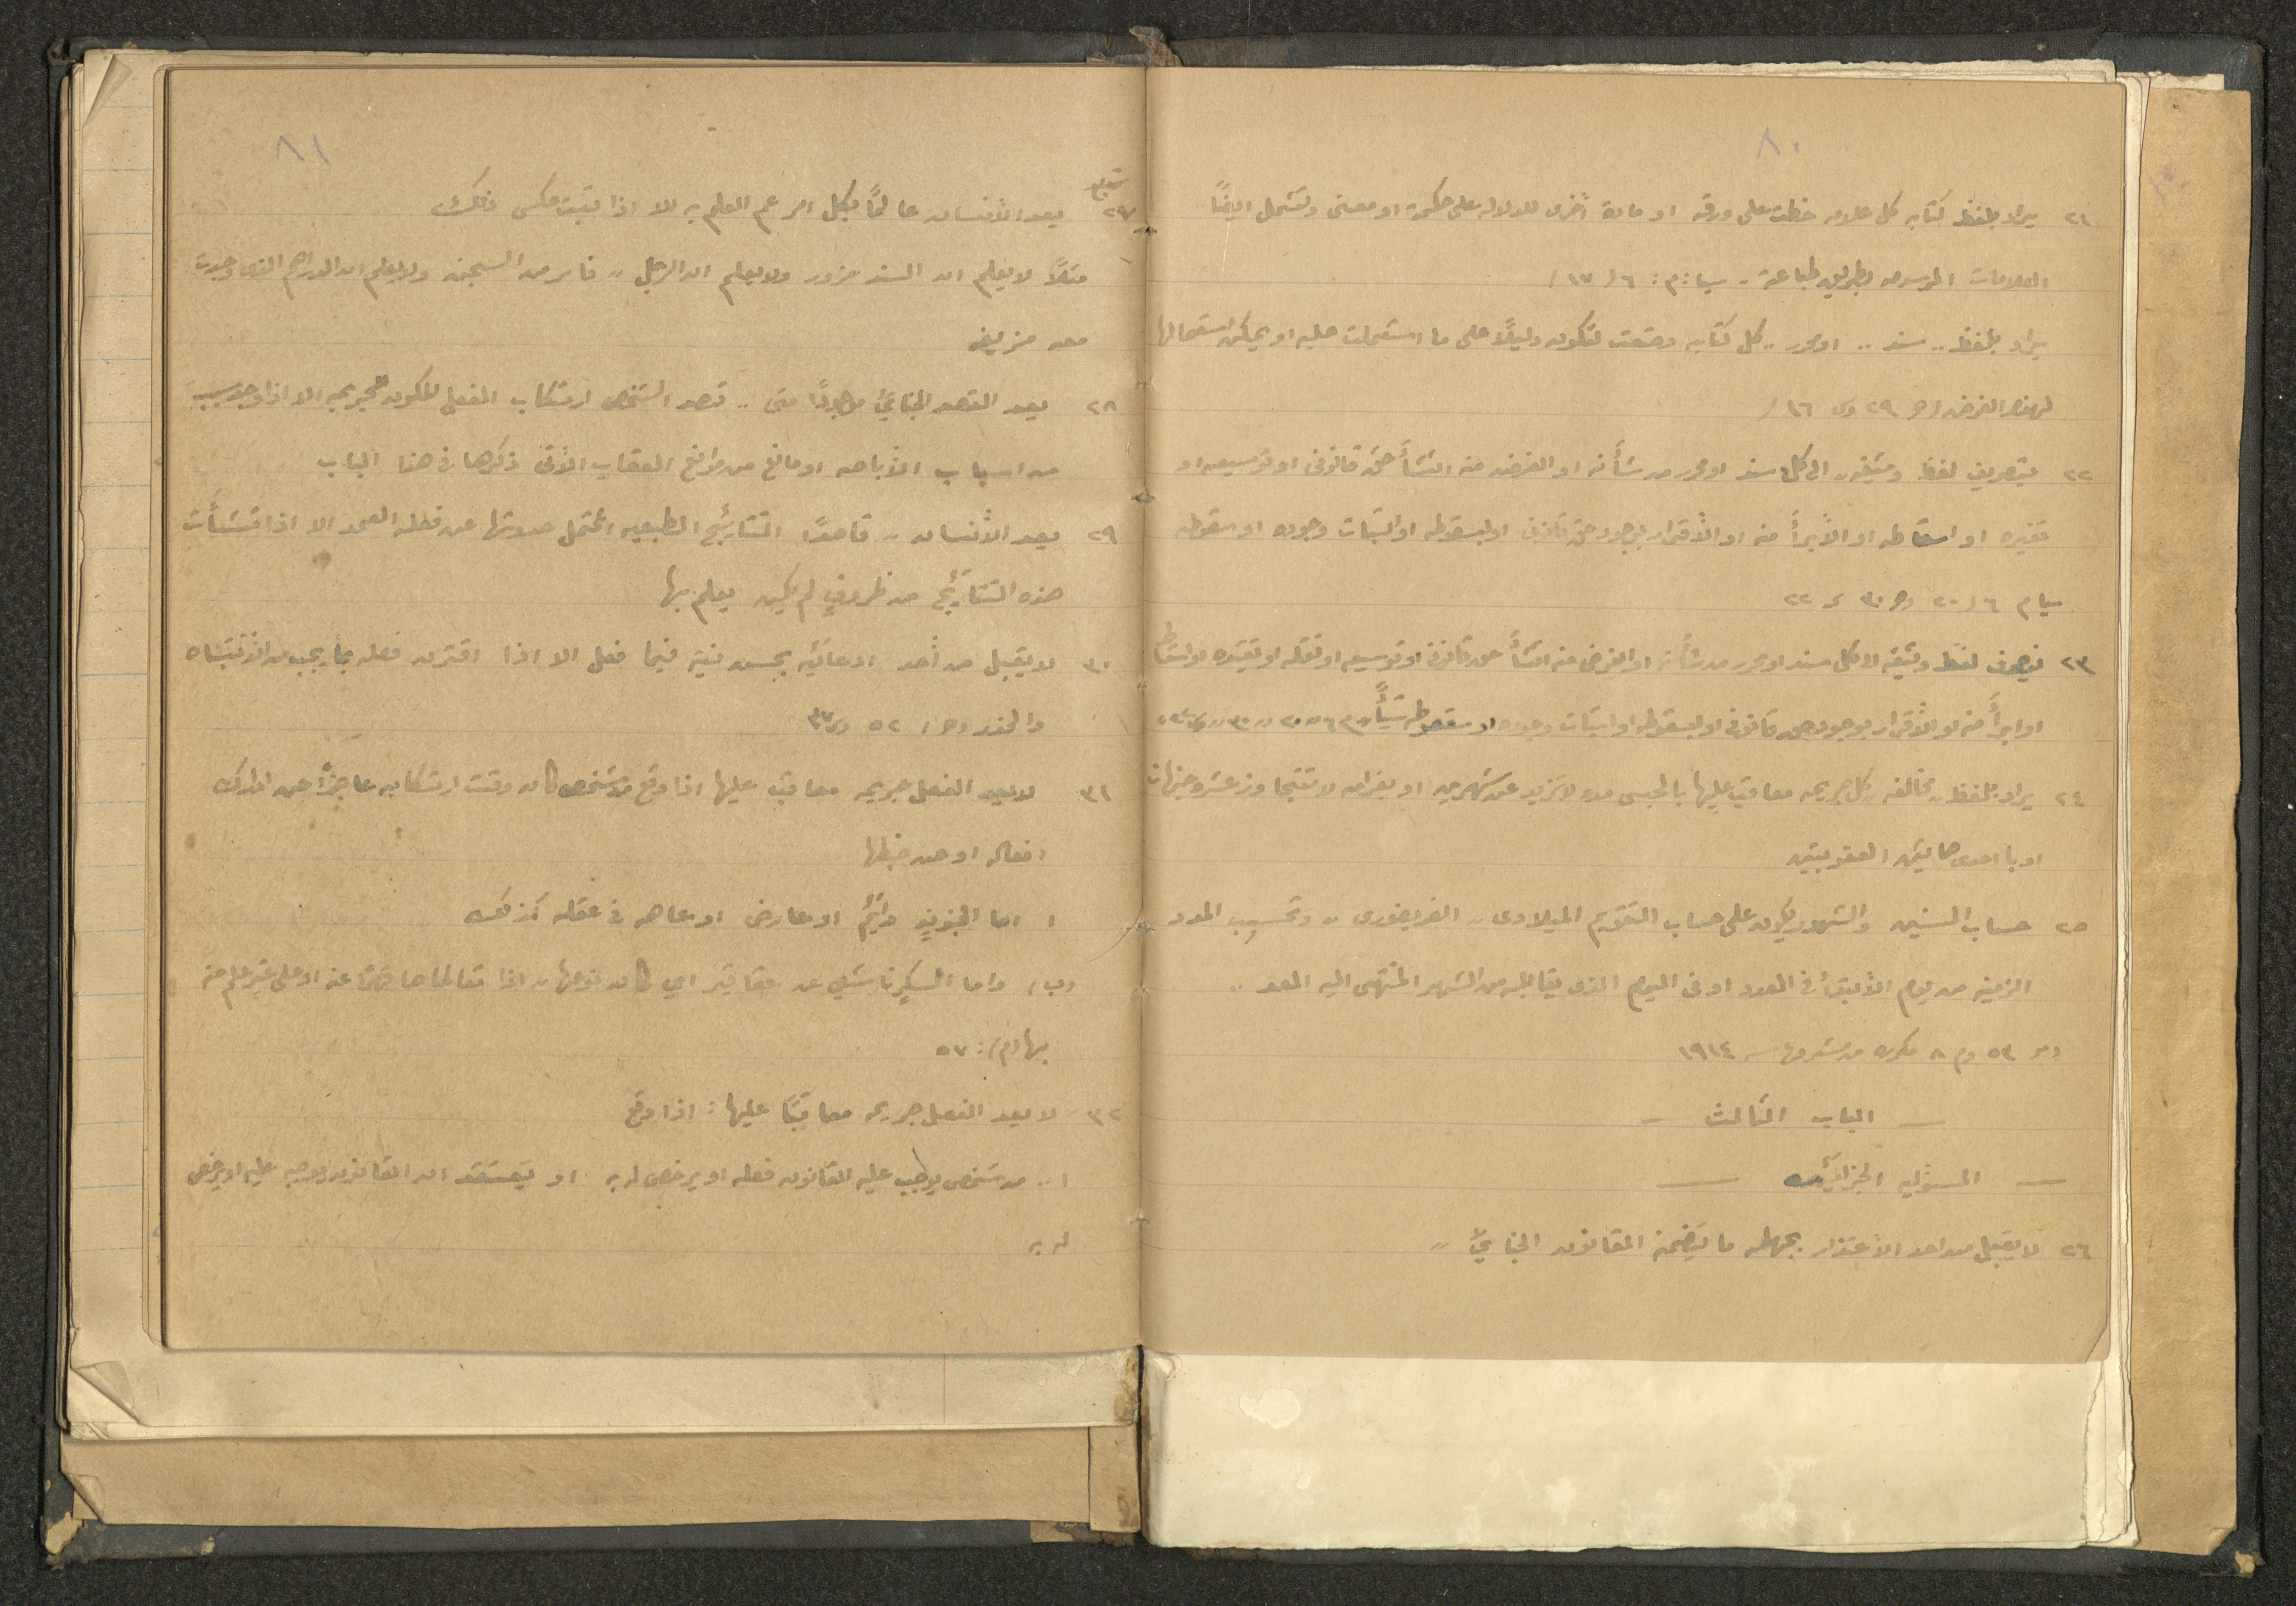 ٨٠
٢١ يراد بلفظ كتابه كل علامه خطت على ورقه او مادة أخرى للدلاله على حكمة او معنى وتشمل ايضاً
العلامات المرسومه بطريق طباعة . سيا : م : ٦ (١٧)
يراد بلفظ .. سند .. او محرر .. كل كتابه وضعت لتكون دليلاً على ما استعملت عليه او يمكن استعمالها
لهذا الغرض (م ٢٩ وى ١٦)
٢٢ يتصريف لفظ وثيقه .. الى كل سند او محرر من شأنه او الغرض منه انشأ حق قانونى او توسيعه او
تغيره او اسقاطه او الأبرأ منه او الأقرار بوجود حق قانونى او بسقوطه او اثبات وجوده او سقوطه
سيا م ٦ (٢٠ وم ٣٠ ى ٢٢
٢٣ يصرف لفظ وثيقه الا كل سند او محرر من شأنه او الغرض منه انشأ حق قانونى او توسيعه او نقله او تقيده او اسقاط
او ابرأ منه او الأقرار بوجود حق قانونى او بسقوطه او اثبات وجوده او سقوطه
٢٤ يراد بلفظ .. مخالفه .. كل جريمه معاقب عليها بالحبس مده لا تزيد عن شهرين او بغرامه لا تتجاوز عشرة جنيهات
او باحدى هاتين العقوبتين
٢٥ حساب السنين والشهور يكون على حساب التقويم الميلادى .. الغريغورى .. وتحسب المدد
الزمنيه من يوم الأبتدأ فى المعدد او فى اليوم الذى يقابله من الشهر المنتهى اليه المعد ..
وم ٥٣ وم ٨ مكرره من مشروع س ١٩١٤
— الباب الثالث —
— المسؤليه الجزائيه —
٢٦ لا يقبل من احد الأعتذار بجهله ما يتضمنه القانون الجنايئ ..
٨١
٢٧ يعد الأنسان عالماً بكل امر عم العلم به الا اذا ثبت عكس ذلك
مثلاً لا يعلم ان السند مزور ولا يعلم ان الرجل .. فار من السجن ولا يعلم ان الدراهم التى وجدت
معه مزيفه
٢٨ يعد القصد الجنايئ موجوداً متى .. قصد الشخص ارتكاب الفعل المكون للجريمه الا اذا وجد سبب
من اسباب الأباحه او مانع من موانع العقاب الأتى ذكرها فى هذا الباب
٢٩ يعد الأنسان .. قاصداً النتائيج الطبعيه المحتمل حدوثها عن فعله العمد الا اذا نشأت
هذه النتائيج من ظروفٍ لم يكن يعلم بها
٣٠ لا يقبل من أحد ادعائيه بحسن نية فيما فعل الا اذا اقترن فعله بما يجب من الأنتباه
والحذر (م) ٥٢ وى ٣٧
٣١ لا يعد الفعل جريمه معاقب عليها اذا وقع من شخص كان وقت ارتكابه عاجزاً عن ادراك
افعاله او عن ضبطها
ا اما لجنونٍ دائيم او عارض او عاهه فى عقله كذلك
(ب) واما لسكرٍ ناشئٍ عن عقاقير اي كان نوعها .. اذا تعاطاها رغماً عنه او على غير علم منه
بها (م) : ٥٧
٣٢ لا يعد الفعل جريمه معاقباً عليها : اذا وقع
١ .. من شخص يوجب عليه القانون فعله او يرخص له به او يعتقد ان القانون يوجبه عليه او يرخص
له به